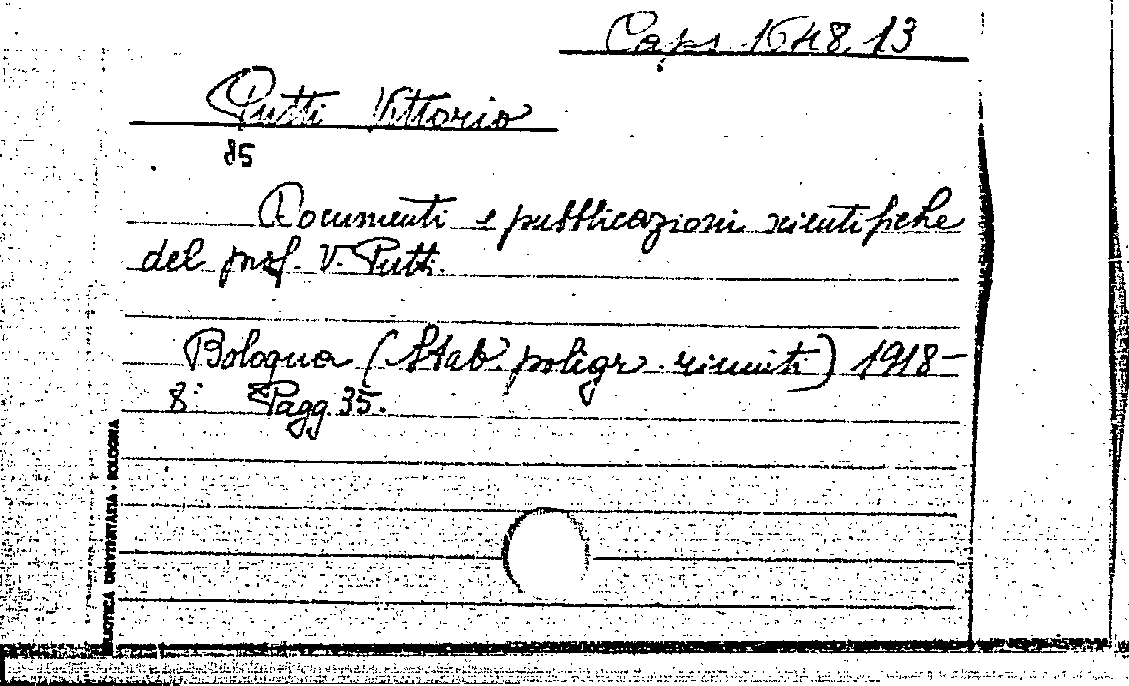 Caps. 1648.13
Putti Vittorio
85
Documenti e pubblicazioni scientifiche
del prof. V. Putti.
Bologna (Stab. poligr. riuniti) 1918-
8° Pagg. 35.
BIBLIOTECA UNIVERSITARIA - BOLOGNA